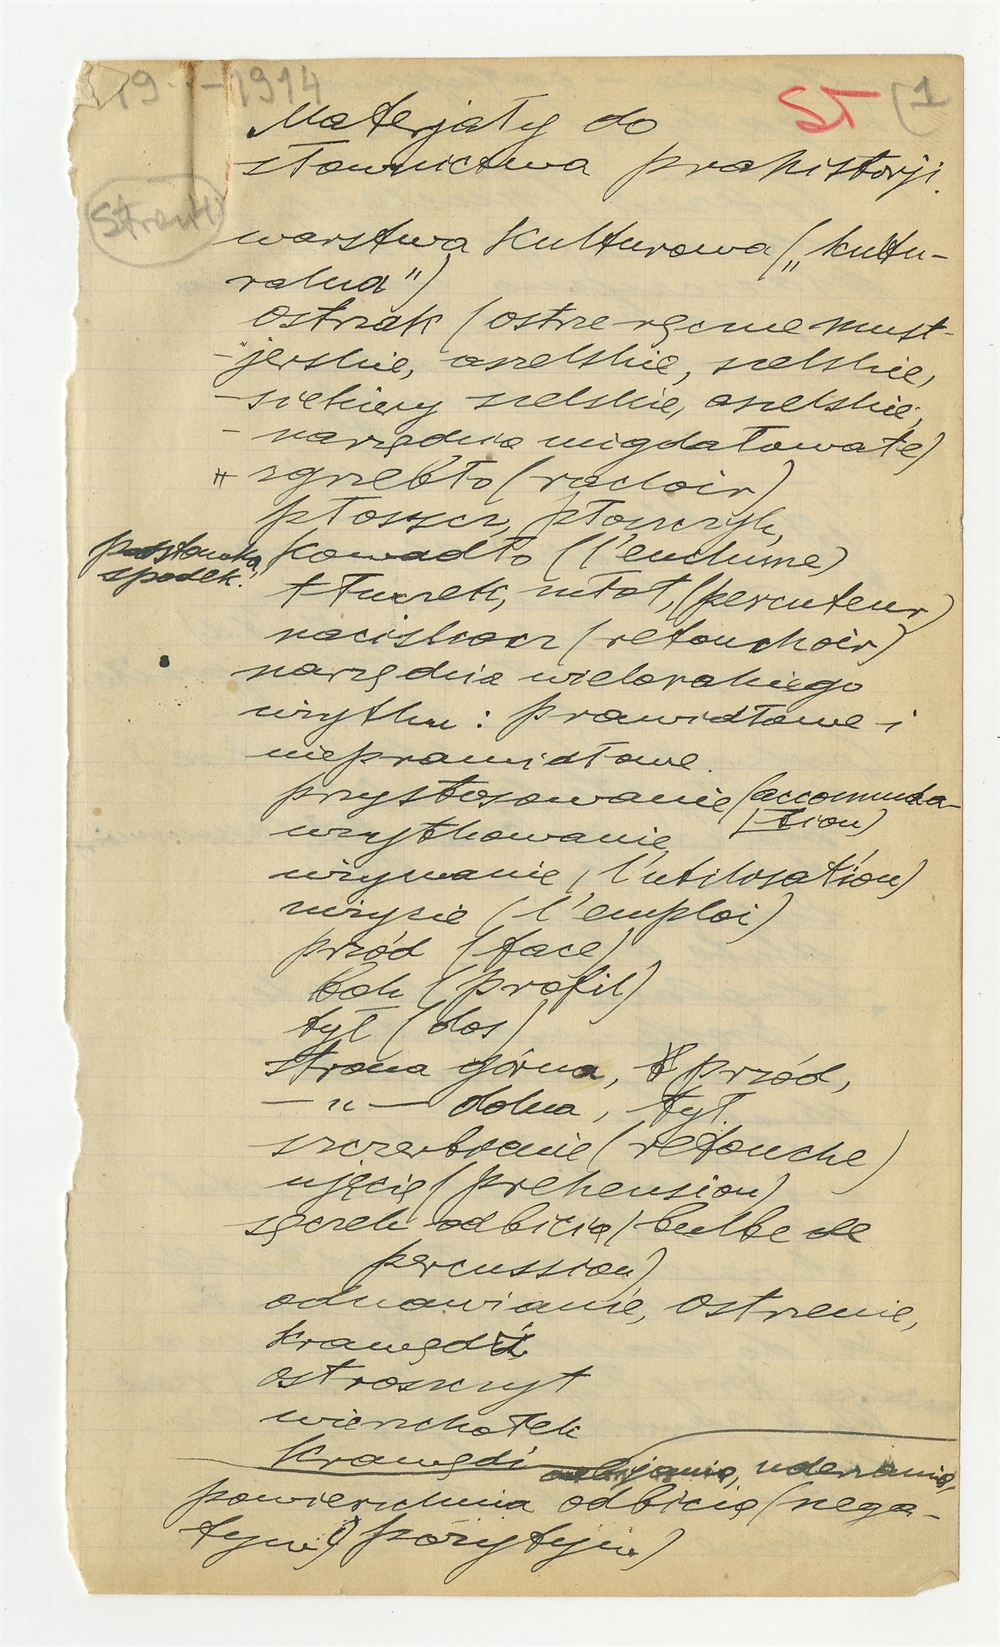 19 - - 1914
ST (1
Materjały do
słownictwa prahistorji.
warstwa kulturowa („kultu-
ralna")
ostrzak (ostrze ręczne must-
-"jerskie, aszelskie, szelskie,
- siekiery szelskie, aszelskie,
- narzędzia migdałowate)
zgrzebło (racloir)
płoszcz, płoszczyk,
podstawka, kowadło (l'enclume)
spodek.
tłuczek, młot, (percuteur)
naciskacz (retouchoir)
narzędzia wielorakiego
użytku: prawidłowe i
nieprawidłowe.
przystosowanie (accommoda-
tion)
użytkowanie,
używanie, l'utilisation)
użycie (l'emploi)
przód (face)
bok (profil)
tył (dos)
strona górna, przód,
— " — dolna, tył
szczerbienie (retouche)
ujęcie (prehension)
sęczek odbicia (bulbe de
percussion)
odnawianie, ostrzenie,
krawędź
ostroszczyt
wierzchołek
krawędź odbijania, uderzania,
powierzchnia odbicia (nega-
tyw) (pozytyw)